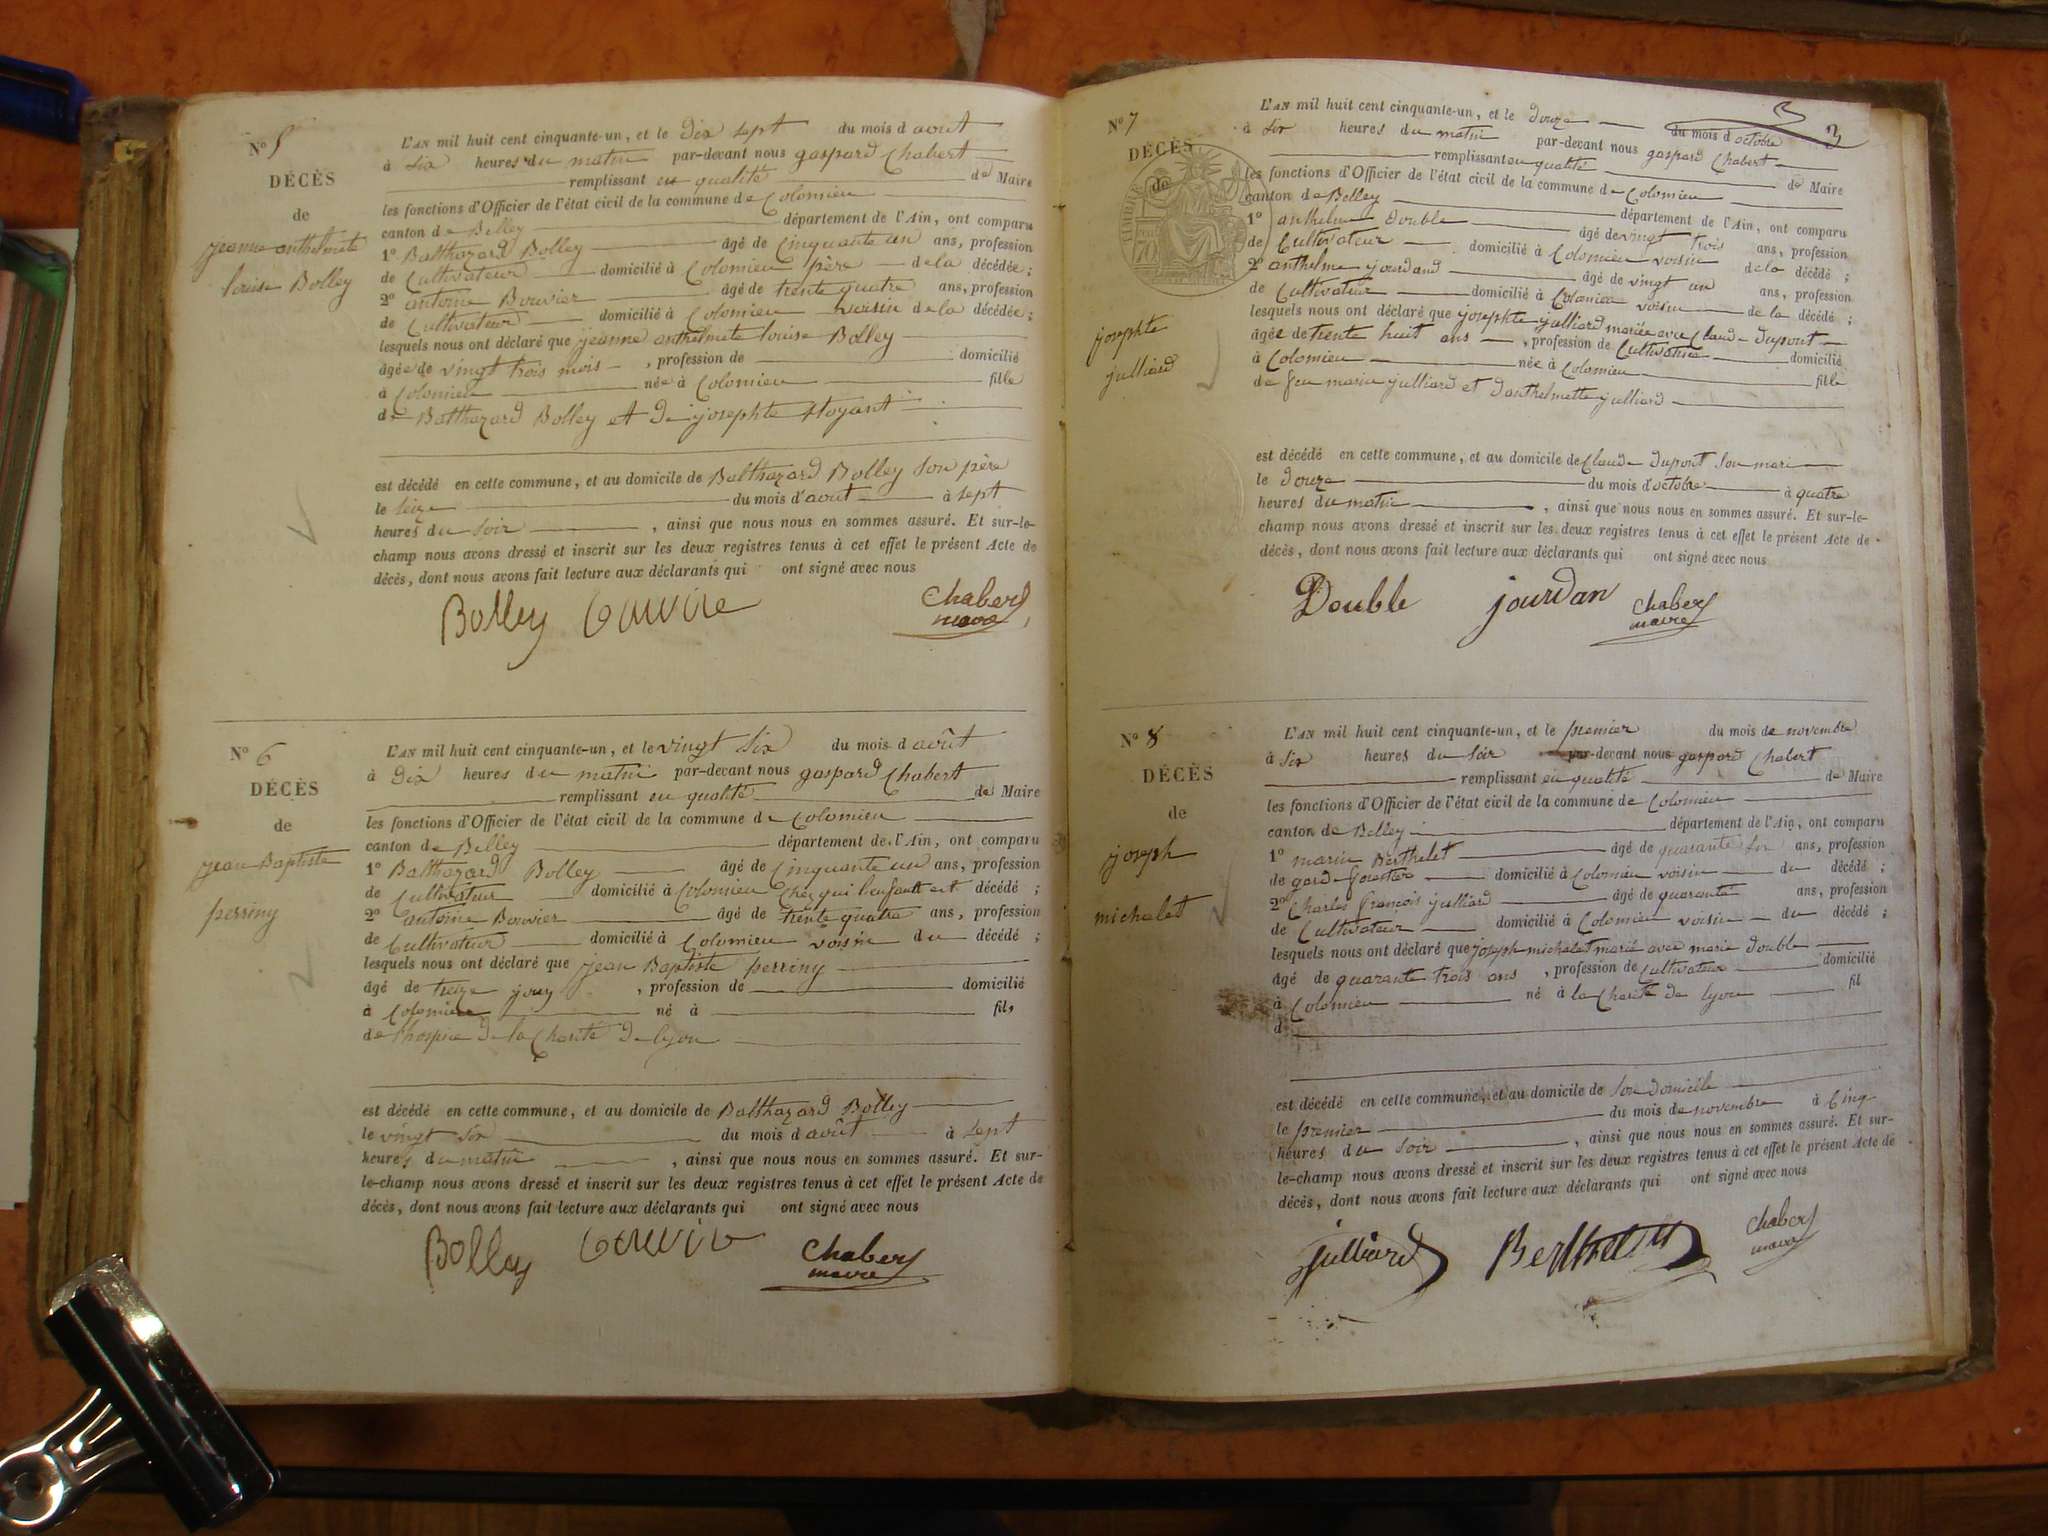 N° 5
DÉCÈS
de
jeanne anthelmete
louise Bolley
L'AN mil huit cent cinquante-un, et le dix sept du mois d'août
à six heures du matin par-devant nous gaspard Chabert
remplissant en qualité de Maire
les fonctions d'Officier de l'état civil de la commune de Colomieu
canton de Belley département de l'Ain, ont comparu
1° Balthazard Bolley âgé de cinquante un ans, profession
de Cultivateur domicilié à Colomieu père de la décédée;
2° antoine Bouvier âgé de trente quatre ans, profession
de Cultivateur domicilié à Colomieu voisin de la décédée;
lesquels nous ont déclaré que jeanne anthelmete louise Bolley
âgée de vingt trois mois, profession de domicilié
à Colomieu née à Colomieu fille
de Balthazard Bolley et de josephte
est décédé en cette commune, et au domicile de Balthazard Bolley son père
le seize du mois d'août à sept
heures du soir, ainsi que nous nous en sommes assuré. Et sur-le-
champ nous avons dressé et inscrit sur les deux registres tenus à cet effet le présent Acte de
décès, dont nous avons fait lecture aux déclarants qui ont signé avec nous
Bolley Bouvie Chabert
maire
N° 6
DÉCÈS
de
jean Baptiste
perriny
L'AN mil huit cent cinquante-un, et le vingt six du mois d'août
à dix heures du matin par-devant nous gaspard Chabert
remplissant en qualité de Maire
les fonctions d'Officier de l'état civil de la commune de Colomieu
canton de Belley département de l'Ain, ont comparu
1° Balthazard Bolley âgé de cinquante un ans, profession
de Cultivateur domicilié à Colomieu chez qui l'enfant est décédé;
2° antoine Bouvier âgé de trente quatre ans, profession
de Cultivateur domicilié à Colomieu voisin du décédé;
lesquels nous ont déclaré que jean Baptiste perriny
âgé de treize jours, profession de domicilié
à Colomieu né à fils
de l'hospice de la Charité de lyon
est décédé en cette commune, et au domicile de Balthazard Bolley
le vingt six du mois d'août à sept
heures du matin, ainsi que nous nous en sommes assuré. Et sur-
le-champ nous avons dressé et inscrit sur les deux registres tenus à cet effet le présent Acte de
décès, dont nous avons fait lecture aux déclarants qui ont signé avec nous
Bolley Bouvie Chabert
maire
3
N° 7
DÉCÈS
de
josephte
julliard
L'AN mil huit cent cinquante-un, et le douze du mois d'octobre
à six heures du matin par-devant nous gaspard Chabert
remplissant en qualité de Maire
les fonctions d'Officier de l'état civil de la commune de Colomieu
canton de Belley département de l'Ain, ont comparu
1° anthelme Double âgé de vingt trois ans, profession
de Cultivateur domicilié à Colomieu voisin de la décédé;
2° anthelme jourdand âgé de vingt un ans, profession
de Cultivateur domicilié à Colomieu voisin de la décédé;
lesquels nous ont déclaré que josephte julliard mariée avec Claude Dupont
âgée de trente huit ans, profession de Cultivatrice domicilié
à Colomieu née à Colomieu fille
de feu marin julliard et d'anthelmette julliard
est décédé en cette commune, et au domicile de Claude Dupont son mari
le douze du mois d'octobre à quatre
heures du matin, ainsi que nous nous en sommes assuré. Et sur-le-
champ nous avons dressé et inscrit sur les deux registres tenus à cet effet le présent Acte de
décès, dont nous avons fait lecture aux déclarants qui ont signé avec nous
Double jourdan Chabert
maire
N° 8
DÉCÈS
de
joseph
michelet
L'AN mil huit cent cinquante-un, et le premier du mois de novembre
à six heures du soir par-devant nous gaspard Chabert
remplissant en qualité de Maire
les fonctions d'Officier de l'état civil de la commune de Colomieu
canton de Belley département de l'Ain, ont comparu
1° marin Berthelet âgé de quarante six ans, profession
de garde forestier domicilié à Colomieu voisin du décédé;
2° Charles françois julliard âgé de quarante ans, profession
de Cultivateur domicilié à Colomieu voisin du décédé;
lesquels nous ont déclaré que joseph michelet marié avec marie double
âgé de quarante trois ans, profession de Cultivateur domicilié
à Colomieu né à la Charité de lyon fil
d
est décédé en cette commune, et au domicile de son domicile
le premier du mois de novembre à cinq
heures du soir, ainsi que nous nous en sommes assuré. Et sur-
le-champ nous avons dressé et inscrit sur les deux registres tenus à cet effet le présent Acte de
décès, dont nous avons fait lecture aux déclarants qui ont signé avec nous
Julliard Berthelet Chabert
maire